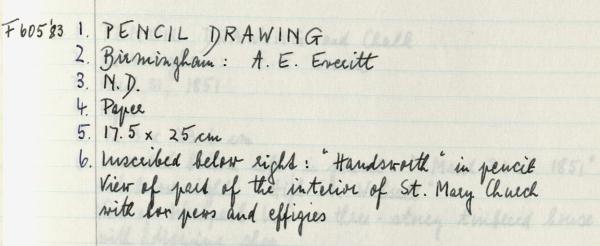 F605'83 1. PENCIL DRAWING
2. Birmingham: A. E. Everitt
3. N.D.
4. Paper
5. 17.5 x 25 cm
6. Inscribed below right: "Handsworth" in pencil
View of part of the interior of St. Mary Church
with box pews and effigies